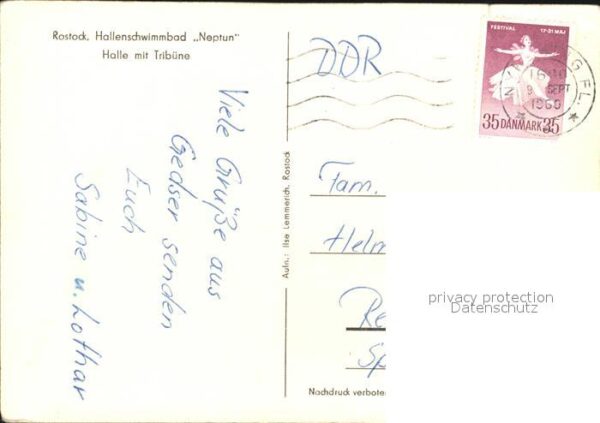 Rostock, Hallenschwimmbad „Neptun"
Halle mit Tribüne
Viele Grüße aus
Gedser senden
Euch
Sabine u. Lothar
Aufn.: Ilse Lemmerich, Rostock
DDR
FESTIVAL 17-31 MAJ
35 DANMARK 35
SEPT
1960
Fam.
Helm
Re
Sp
privacy protection
Datenschutz
Nachdruck verboten